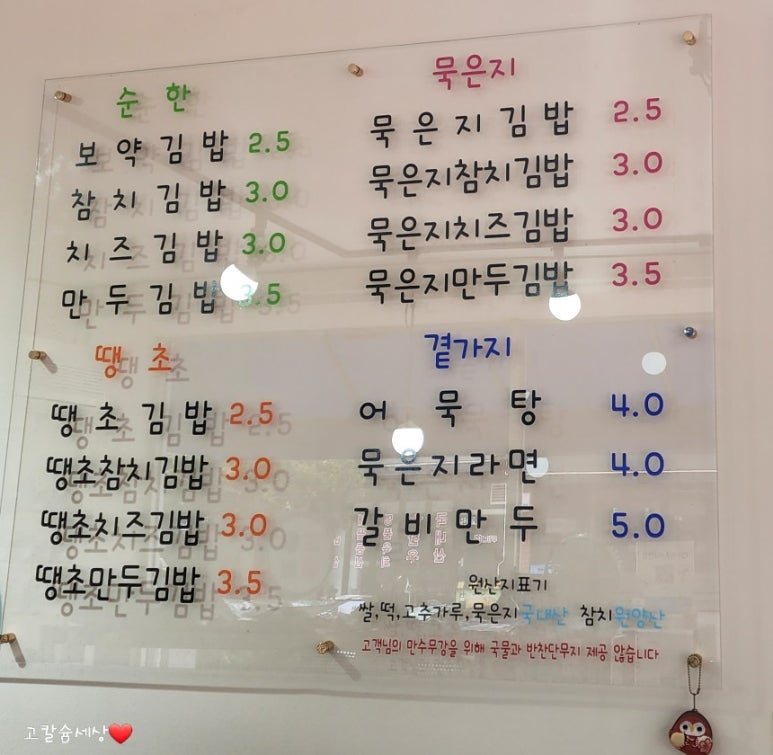 순한
보약김밥 2.5
참치김밥 3.0
치즈김밥 3.0
만두김밥 3.5
묵은지
묵은지김밥 2.5
묵은지참치김밥 3.0
묵은지치즈김밥 3.0
묵은지만두김밥 3.5
땡초
땡초김밥 2.5
땡초참치김밥 3.0
땡초치즈김밥 3.0
땡초만두김밥 3.5
곁가지
어묵탕 4.0
묵은지라면 4.0
갈비만두 5.0
원산지표기
쌀,떡,고추가루,묵은지국내산 참치원양산
고객님의 만수무강을 위해 국물과 반찬단무지 제공 않습니다
고칼슘세상❤️